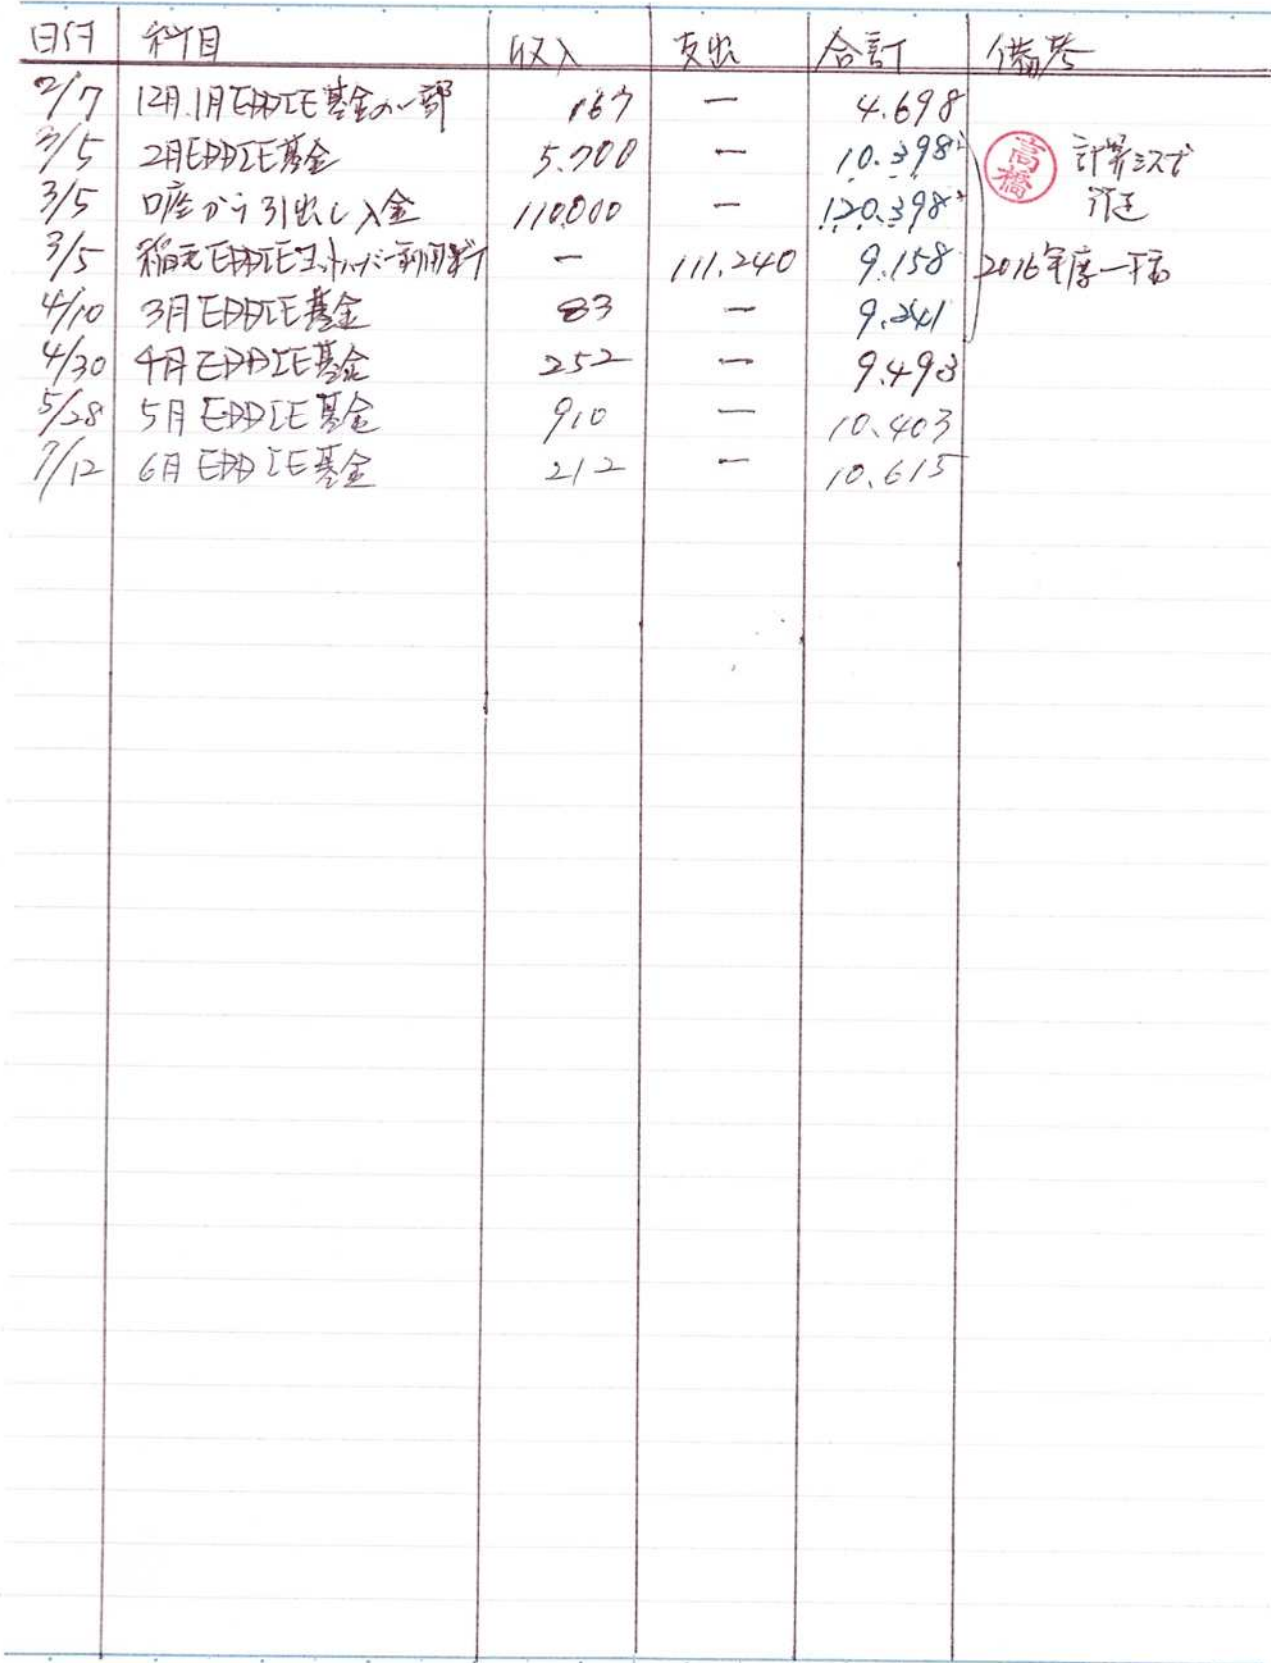 日付 科目 収入 支出 合計 備考
2/7 12月.1月EDDIE基金の一部 167 ー 4.698
3/5 2月EDDIE基金 5.700 ー 10.398 高橋 計算ミスで
3/5 口座から引出し入金 110.000 ー 120.398 訂正
3/5 稲毛EDDIEヨットハーバー利用 ー 111.240 9.158 2016年度一下
4/10 3月EDDIE基金 83 ー 9.241
4/30 4月EDDIE基金 252 ー 9.493
5/28 5月EDDIE基金 910 ー 10.403
7/12 6月EDDIE基金 212 ー 10.615